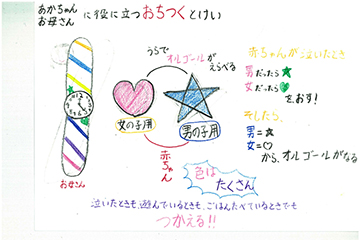 あかちゃん
お母さん に役に立つおちつくとけい
うらで
オルゴールが
えらべる
女の子用
男の子用
赤ちゃん
お母さん
赤ちゃんが泣いたとき
男だったら★
女だったら
を、おす!
そしたら、
男=★
女=♡
から、オルゴールがなる
色は
たくさん
泣いたときも、遊んでいるときも、ごはんたべているときでも
つかえる!!